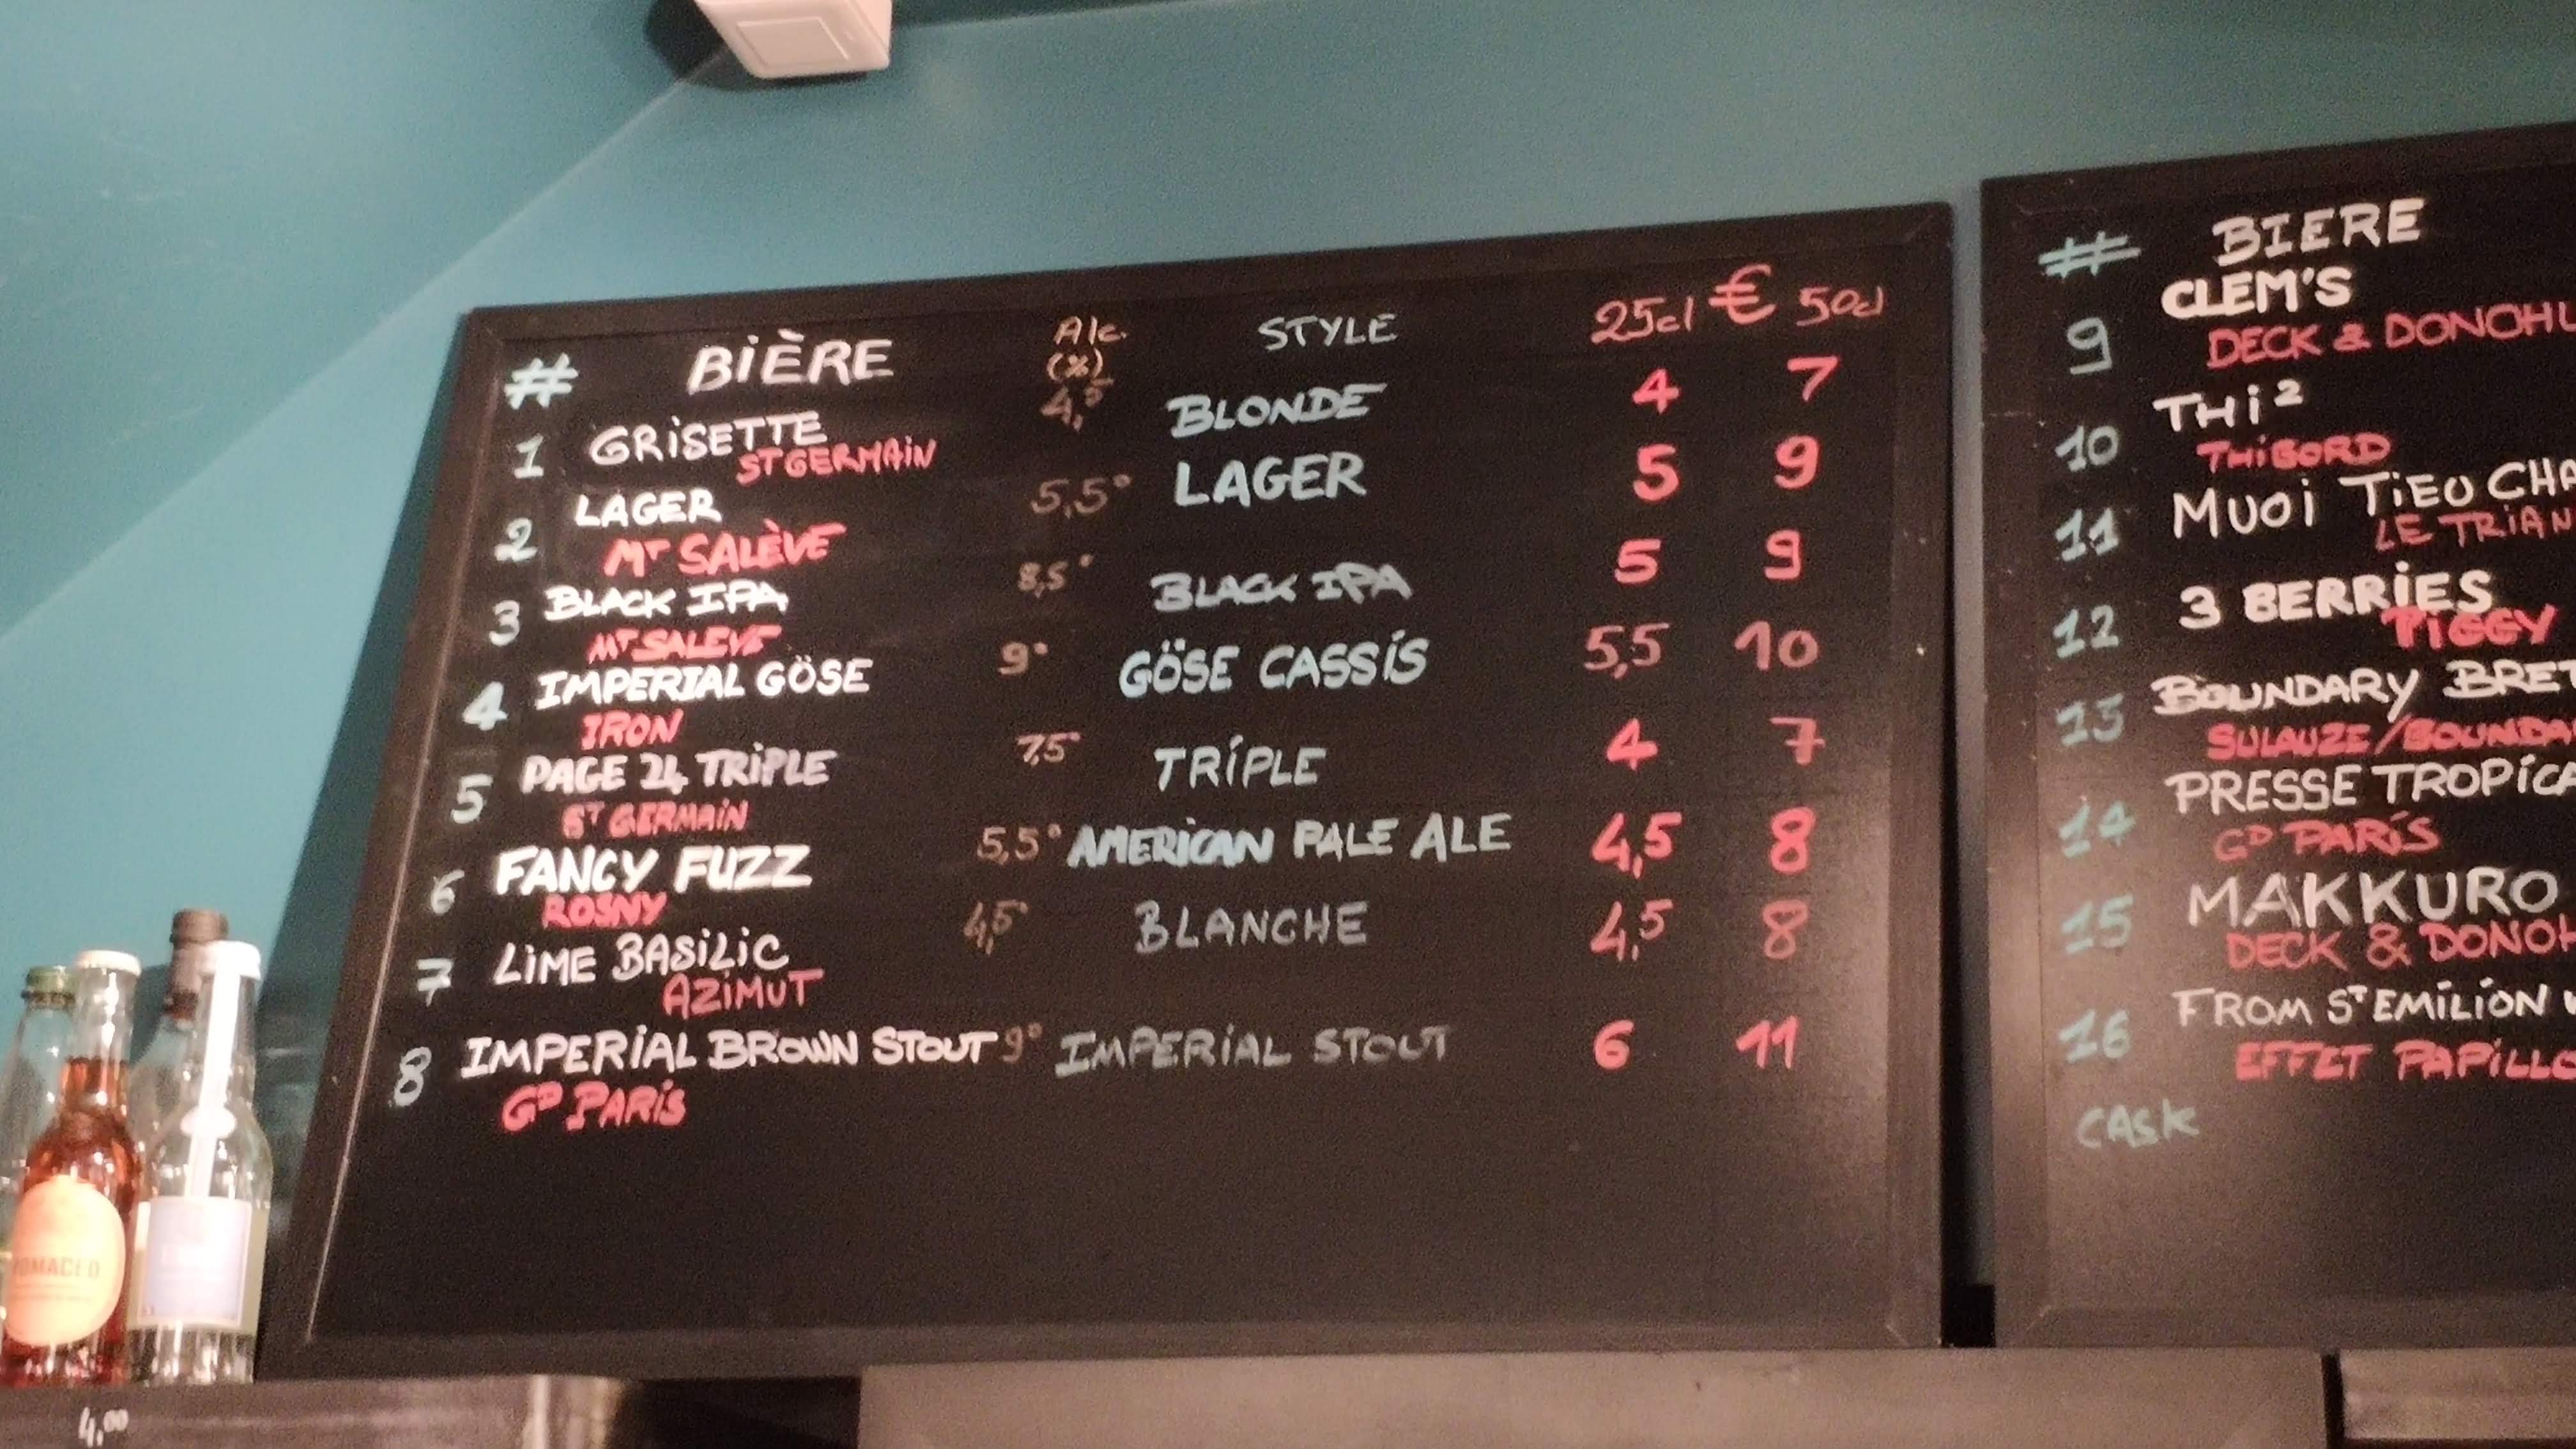 # BIÈRE Alc. (%) STYLE 25cl € 50cl
1 GRISETTE 4,5 BLONDE 4 7
ST GERMAIN
2 LAGER 5,5° LAGER 5 9
MT SALÈVE
3 BLACK IPA 8,5° BLACK IPA 5 9
MT SALEVE
4 IMPERIAL GÖSE 9° GÖSE CASSIS 5,5 10
IRON
5 PAGE 24 TRIPLE 7,5° TRIPLE 4 7
ST GERMAIN
6 FANCY FUZZ 5,5° AMERICAN PALE ALE 4,5 8
ROSNY
7 LIME BASILIC 4,5° BLANCHE 4,5 8
AZIMUT
8 IMPERIAL BROWN STOUT 9° IMPERIAL STOUT 6 11
GD PARIS
# BIERE
9 CLEM'S
DECK & DONOHU
10 THI²
THIBORD
11 MUOI TIEU CHA
LE TRIAN
12 3 BERRIES
PIGGY
13 BOUNDARY BRET
SULAUZE/BOUNDA
14 PRESSE TROPICA
GD PARIS
15 MAKKURO
DECK & DONOH
16 FROM ST EMILION
EFFET PAPILLO
CASK
4,00